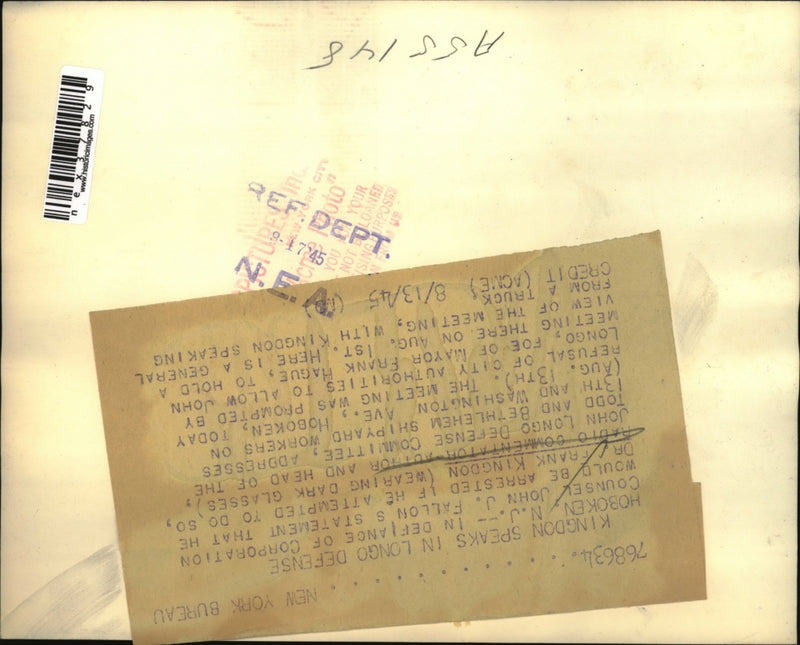 ASS148
nex37829
www.historicimages.com
REF. DEPT.
9-17'45
N.E.A.
YOUR
768634 . . . . . . . . . . . NEW YORK BUREAU
KINGDON SPEAKS IN LONGO DEFENSE
HOBOKEN, N.J.-- IN DEFIANCE OF CORPORATION
COUNSEL JOHN J. FALLON'S STATEMENT THAT HE
WOULD BE ARRESTED IF HE ATTEMPTED TO DO SO,
DR. FRANK KINGDON (WEARING DARK GLASSES),
RADIO COMMENTATOR-AUTHOR AND HEAD OF THE
JOHN LONGO DEFENSE COMMITTEE, ADDRESSES
TODD AND BETHLEHEM SHIPYARD WORKERS ON
13TH AND WASHINGTON AVE., HOBOKEN, TODAY
(AUG. 13TH). THE MEETING WAS PROMPTED BY
REFUSAL OF CITY AUTHORITIES TO ALLOW JOHN
LONGO, FOE OF MAYOR FRANK HAGUE, TO HOLD A
MEETING THERE ON AUG. 1ST. HERE IS A GENERAL
VIEW OF THE MEETING, WITH KINGDON SPEAKING
FROM A TRUCK.
CREDIT (ACME) 8/13/45